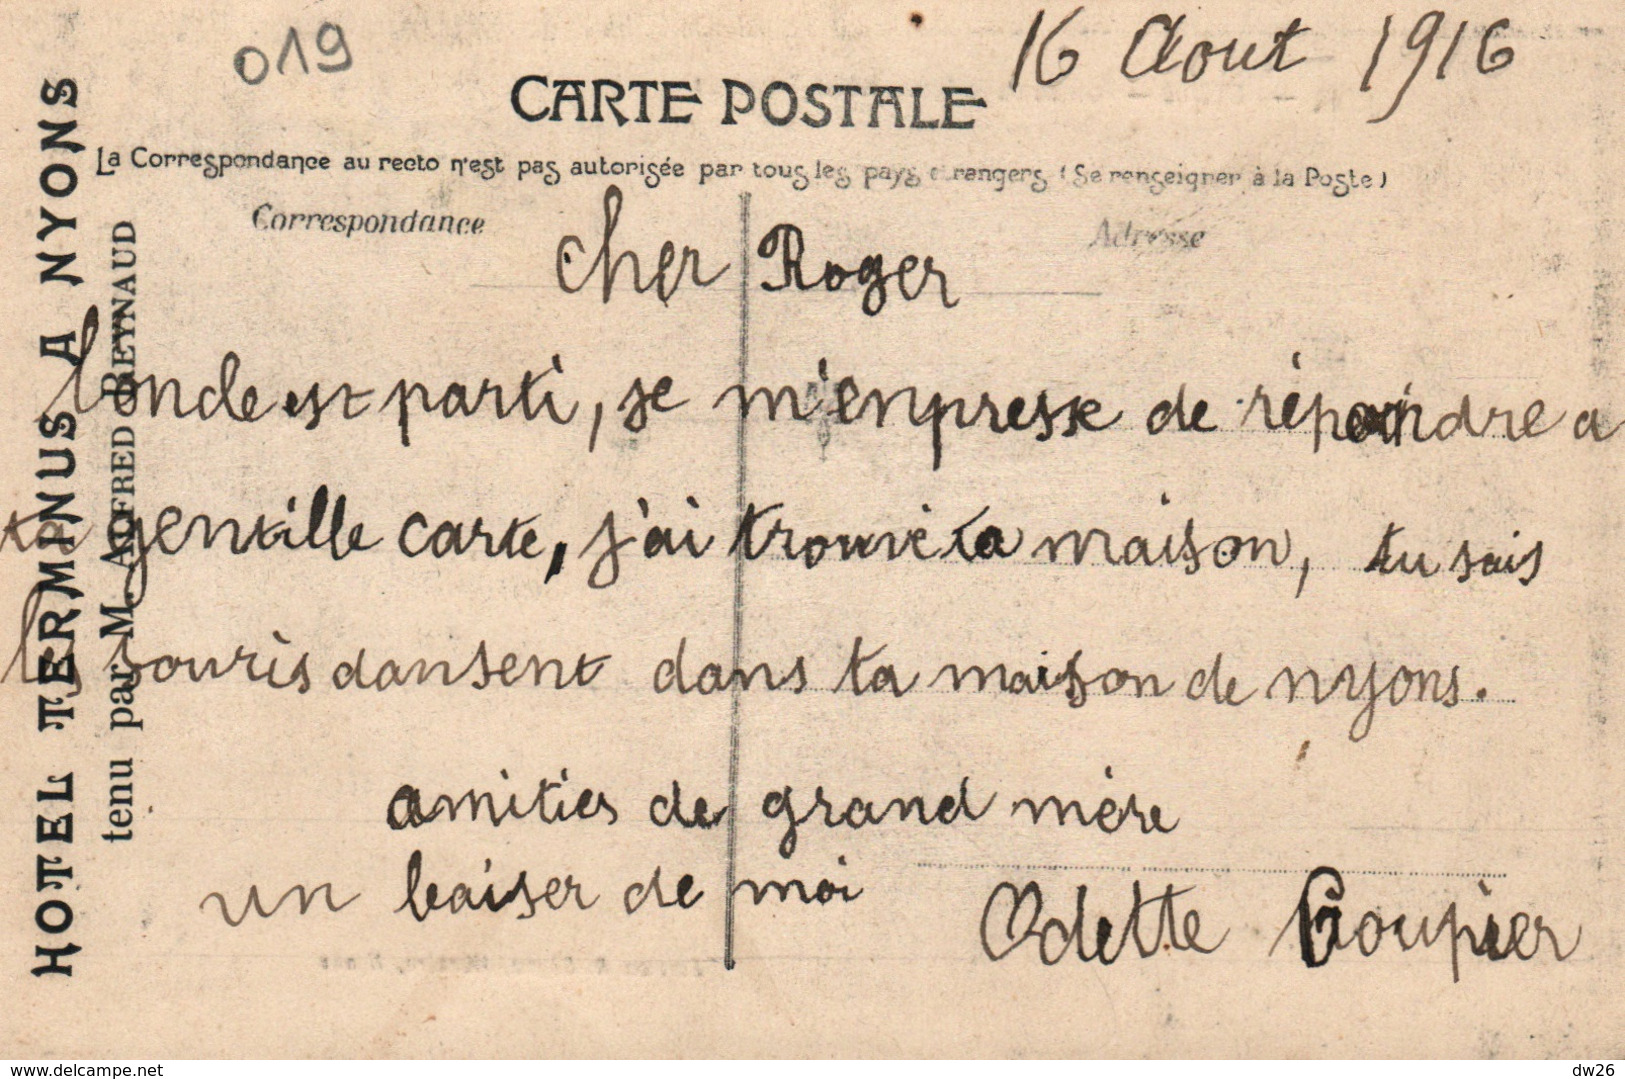 019
16 Aout 1916
CARTE POSTALE
La Correspondance au recto n'est pas autorisée par tous les pays etrangers (Se renseigner à la Poste)
Correspondance
Adresse
HOTEL TERMINUS A NYONS
tenu par M. ALFRED REYNAUD
cher Roger
l'oncle est parti, je m'enpresse de répondre a
ta gentille carte, j'ai trouvé ta maison, tu sais
les souris dansent dans ta maison de nyons.
amitiés de grand mère
un baiser de moi
Odette Goupier
delcampe.net
dw26